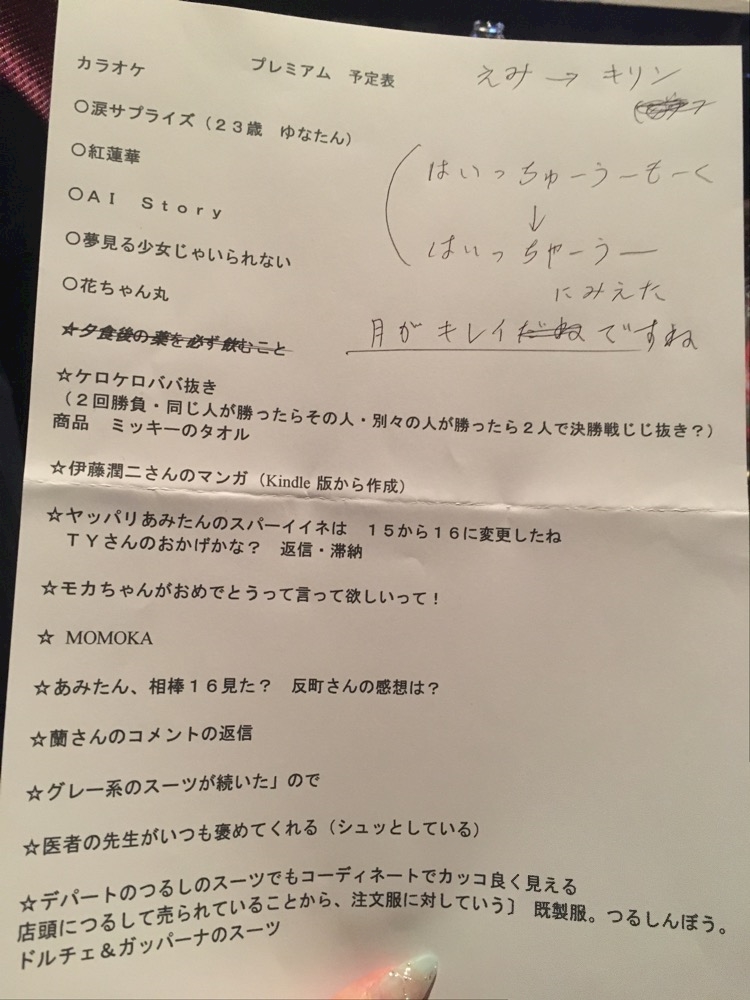 カラオケ　プレミアム　予定表
えみ→キリン
○涙サプライズ（２３歳　ゆなたん）
○紅蓮華
はいっちゅーうーもーく
↓
○ＡＩ　Ｓｔｏｒｙ
はいっちゃーうー
○夢見る少女じゃいられない
にみえた
○花ちゃん丸
月がキレイだねですね
☆夕食後の薬を必ず飲むこと
☆ケロケロババ抜き
（２回勝負・同じ人が勝ったらその人・別々の人が勝ったら２人で決勝戦じじ抜き？）
商品　ミッキーのタオル
☆伊藤潤二さんのマンガ（Kindle 版から作成）
☆ヤッパリあみたんのスパーイイネは　１５から１６に変更したね
ＴＹさんのおかげかな？　返信・滞納
☆モカちゃんがおめでとうって言って欲しいって！
☆ MOMOKA
☆あみたん、相棒１６見た？　反町さんの感想は？
☆蘭さんのコメントの返信
☆グレー系のスーツが続いた」ので
☆医者の先生がいつも褒めてくれる（シュッとしている）
☆デパートのつるしのスーツでもコーディネートでカッコ良く見える
店頭につるして売られていることから、注文服に対していう〕　既製服。つるしんぼう。
ドルチェ＆ガッパーナのスーツ